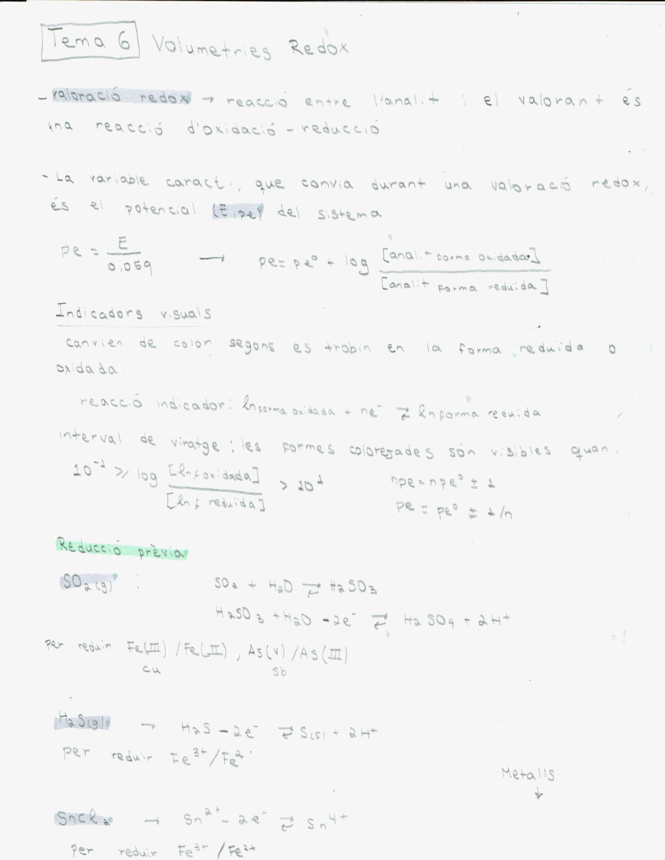 Tema 6 Volumetries Redox
- valoració redox → reacció entre l'analit i el valorant és
una reacció d'oxidació - reducció
- La variable caract., que canvia durant una valoració redox,
és el potencial (E i pe) del sistema
pe = E / 0.059 → pe = pe⁰ + log [analit forma oxidada] / [analit forma reduida]
Indicadors visuals
canvien de color segons es trobin en la forma reduïda o
oxidada.
reacció indicador: In forma oxidada + ne⁻ ⇄ In forma reduida
interval de viratge: les formes colorejades són visibles quan.
10⁻¹ ≥ log [In f oxidada] / [In f reduïda] > 10¹ npe = npe⁰ ± 1
pe = pe⁰ ± 1/n
Reducció prèvia
SO₂(g) : SO₂ + H₂O ⇄ H₂SO₃
H₂SO₃ + H₂O - 2e⁻ ⇄ H₂SO₄ + 2H⁺
per reduir Fe(III)/Fe(II), As(V)/As(III)
Cu Sb
H₂S(g) → H₂S - 2e⁻ ⇄ S(s) + 2H⁺
per reduir Fe³⁺/Fe²⁺
Metalls
↓
SnCl₂ → Sn²⁺ - 2e⁻ ⇄ Sn⁴⁺
per reduir Fe³⁺/Fe²⁺